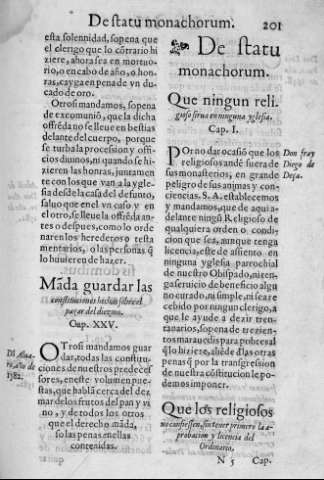 De statu monachorum. 201
esta solennidad, so pena que
el clerigo que lo cõtrario hi
ziere, ahora sea en mortuo-
rio, o en cabo de año, o hon-
ras, cayga en pena de vn du-
cado de oro.
Otrosi mandamos, so pena
de excomuniõ, que la dicha
offrēda no se lleue en bestias
delante del cuerpo, porque
se turba la procession y offi-
cios diuinos, ni quando se hi-
zieren las honras, juntamen
te con los que van a la ygle-
sia desde la casa del defunto,
saluo que en el vn caso y en
el otro, se lleue la offrēda an-
tes o despues, como lo orde
naren los herederos o testa
mentarios, o las personas q̃
lo huuieren de hazer.
Mãda guardar las
constituciones hechas sobre el
pagar del diezmo.
Cap. XXV.
OTrosi mandamos guar
dar, todas las constitu-
ciones de nuestros predeces
sores, en este volumen pue-
stas, que hablã cerca del dez
mar de los frutos del pan y vi
no, y de todos los otros
que el derecho mãda,
so las penas en ellas
contenidas.
1582.
De statu
monachorum.
Que ningun reli-
gioso sirua en ninguna yglesia.
Cap. I.
POr no dar ocasiõ que los
religiosos andē fuera de
sus monasterios, en grande
peligro de sus animas y con-
ciencias. S. A. establecemos
y mandamos, que de aqui a-
delante ningũ Religioso de
qualquiera orden o condi-
cion que sea, aunque tenga
licencia, este de assiento en
ninguna yglesia parochial
de nuestro Obispado, ni ten-
ga seruicio de beneficio algu
no curado, ni simple, ni sea re
cebido por ningun clerigo, a
que le ayude a dezir tren-
tanarios, so pena de trezien-
tos marauedis para pobres al
q̃ lo hiziere, allēde d̃ las otras
penas q̃ por la transgression
de nuestra cõstitucion le po-
demos imponer.
Don fray
Diego de
Deça.
Que los religiosos
no confiessen, sin tener primero la a-
probacion y licencia del
Ordinario.
N 5 Cap.